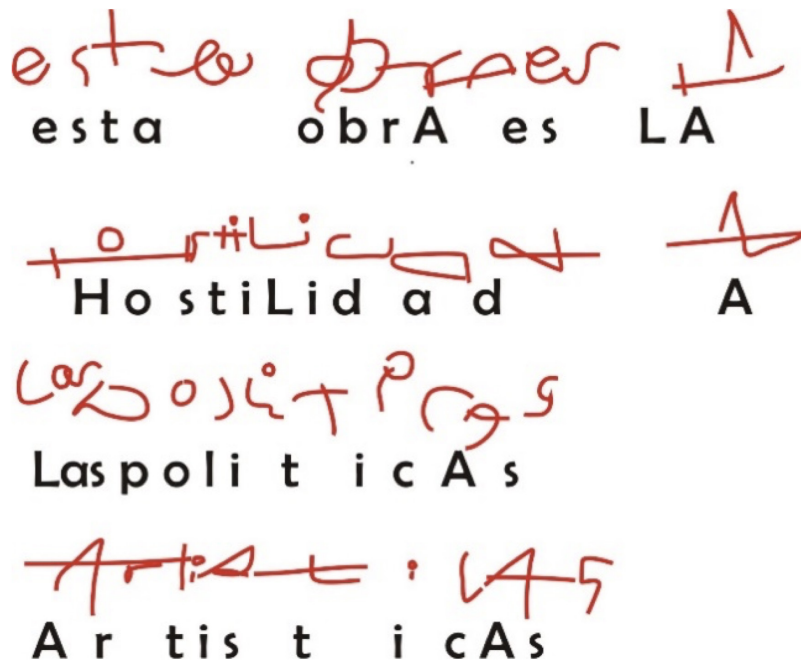 esta obrA es LA
esta obrA es LA
HostiLidad A
HostiLidad A
Las politicAs
LaspoliticAs
ArtisticAs
ArtisticAs